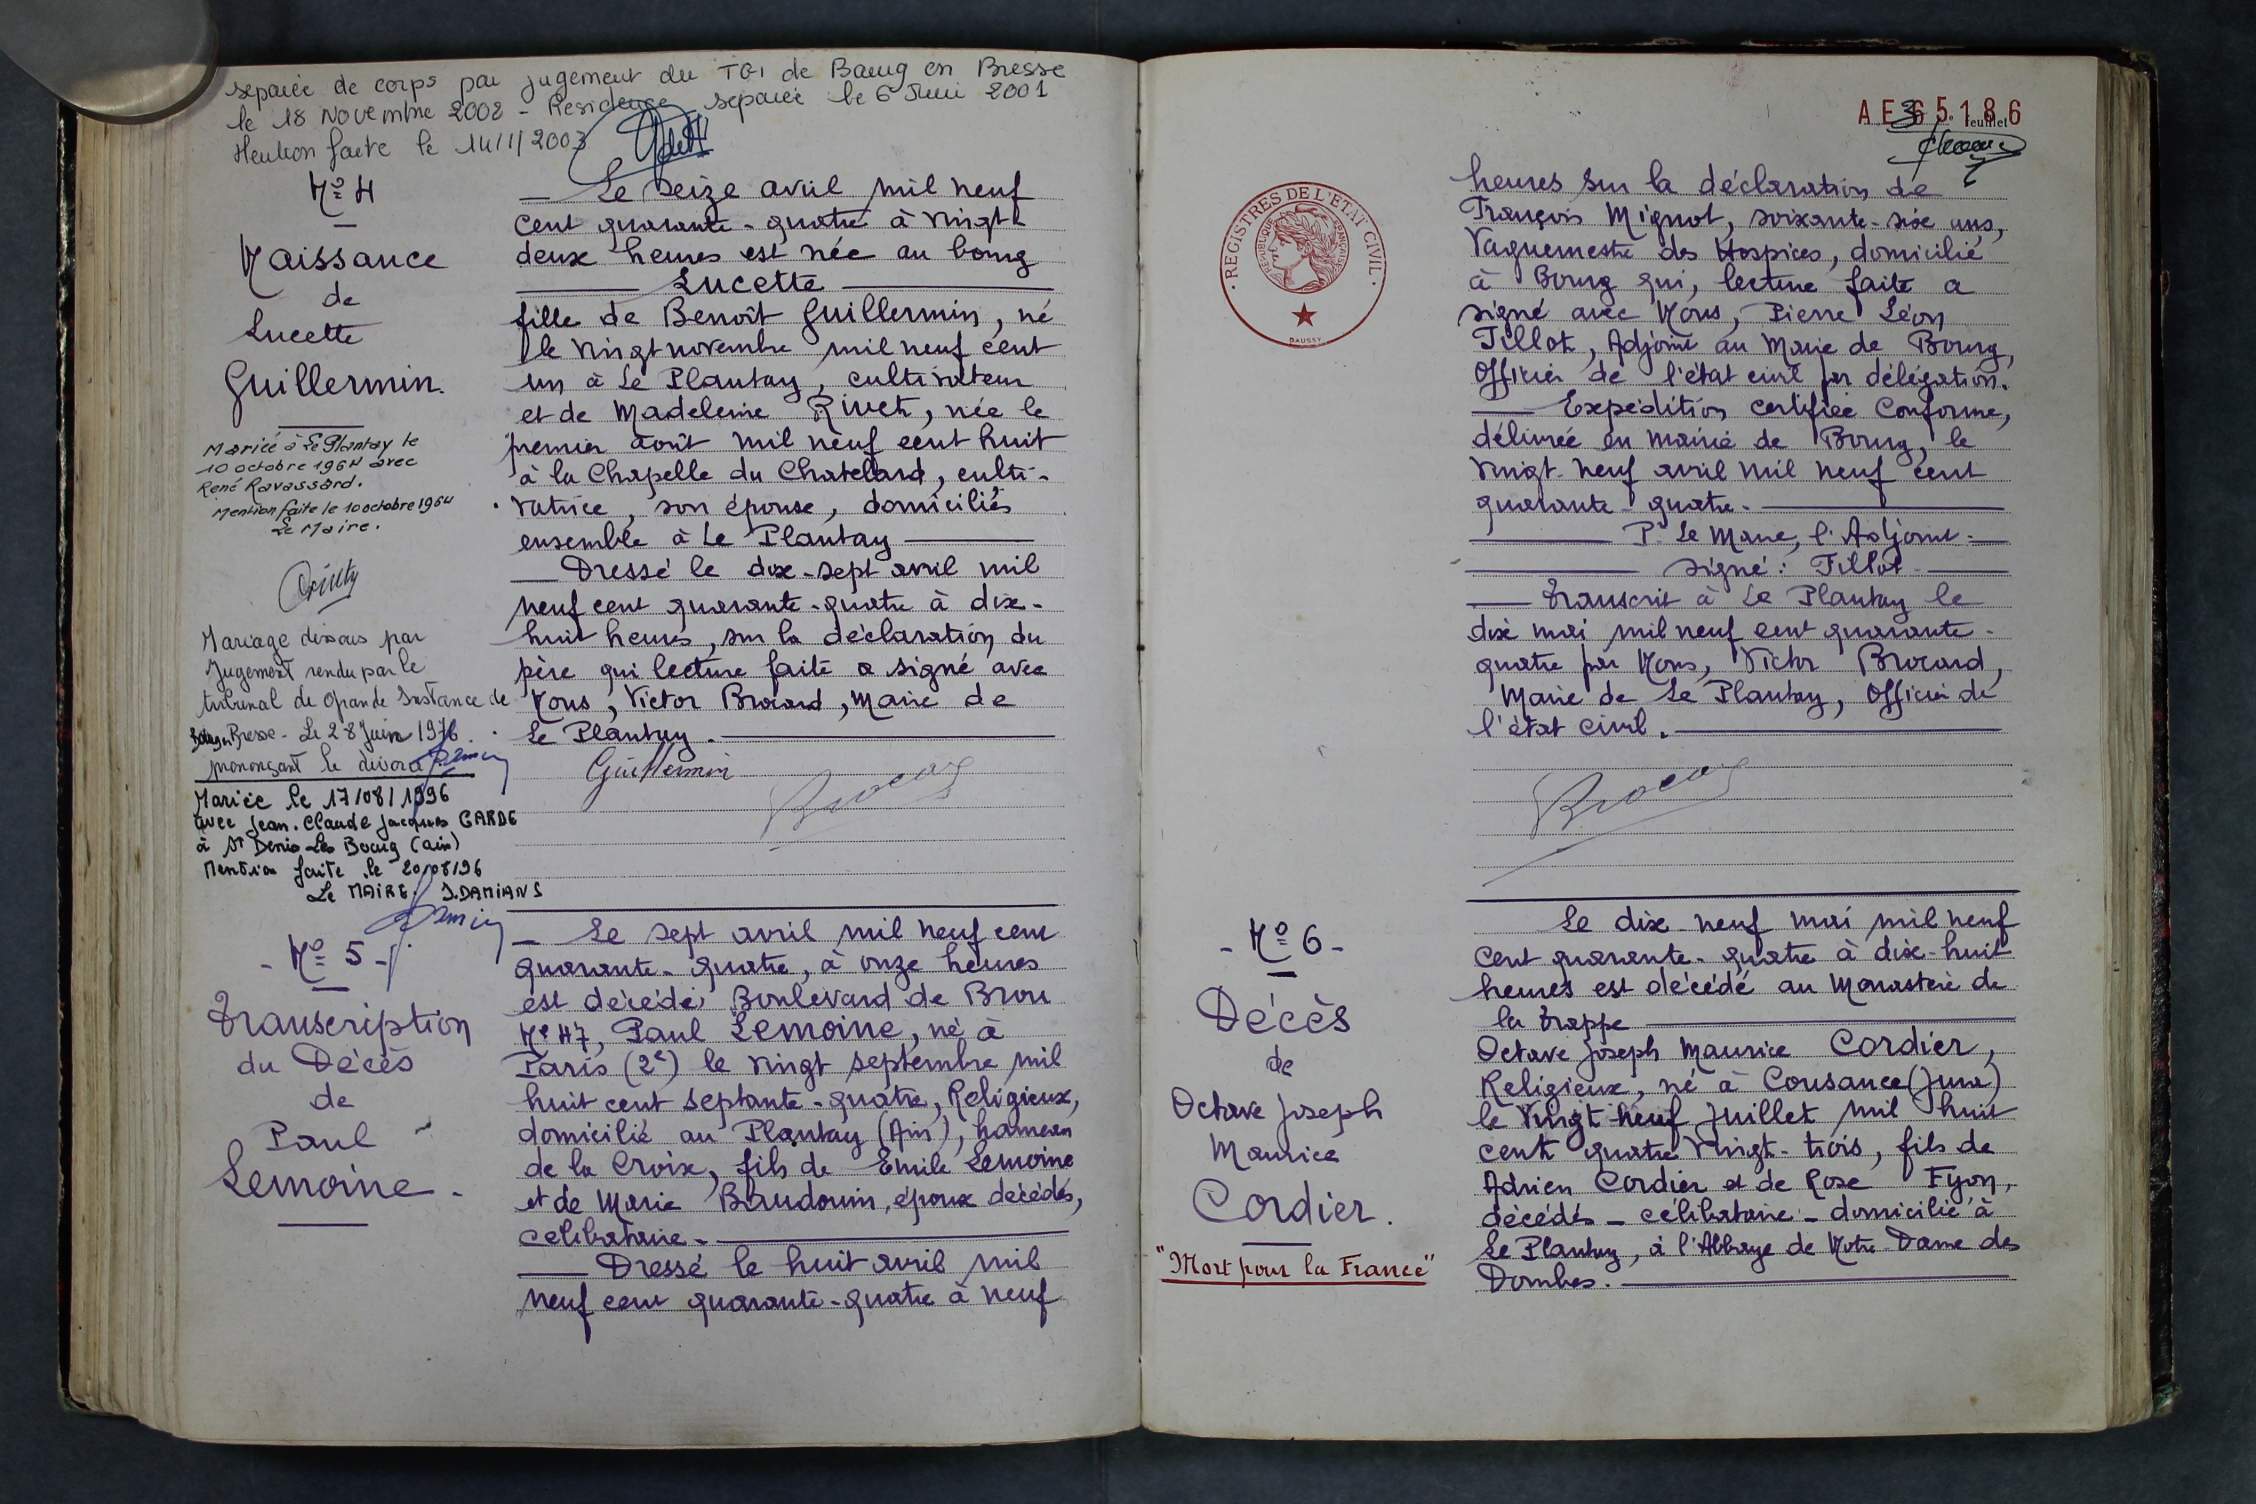 séparée de corps par jugement du TGI de Bourg en Bresse
le 18 Novembre 2002 - Résidence séparée le 6 Juin 2001
Mention faite le 14/1/2003
Nº 4
Naissance
de
Lucette
Guillermin.
Mariée à Le Plantay le
10 octobre 1964 avec
René Ravassard.
Mention faite le 10 octobre 1964
Le Maire.
Mariage dissous par
Jugement rendu par le
tribunal de Grande Instance de
Bourg en Bresse - Le 28 Juin 1976.
prononçant le divorce
Mariée le 17/08/1996
avec Jean-Claude Jacques GARDE
à St Denis Les Bourg (ain)
Mention faite le 20/08/96
Le MAIRE. J. DAMIANS
Le seize avril mil neuf
cent quarante-quatre à vingt
deux heures est née au bourg
Lucette
fille de Benoît Guillermin, né
le vingt novembre mil neuf cent
un à Le Plantay, cultivateur
et de Madeleine Rivet, née le
premier août mil neuf cent huit
à la Chapelle du Chatelard, culti-
vatrice, son épouse, domiciliés
ensemble à Le Plantay
Dressé le dix-sept avril mil
neuf cent quarante-quatre à dix-
huit heures, sur la déclaration du
père qui lecture faite a signé avec
Nous, Victor Brocard, Maire de
Le Plantay.
Guillermin
Brocard
- Nº 5 -
Transcription
du Décès
de
Paul
Lemoine.
Le sept avril mil neuf cent
quarante-quatre, à onze heures
est décédé Boulevard de Brou
Nº 47, Paul Lemoine, né à
Paris (2e) le vingt septembre mil
huit cent septante-quatre, Religieux,
domicilié au Plantay (Ain), hameau
de la Croix, fils de Emile Lemoine
et de Marie Baudouin, époux décédés,
célibataire.
Dressé le huit avril mil
neuf cent quarante-quatre à neuf
AE 365186
feuillet
REGISTRES DE L'ETAT CIVIL
REPUBLIQUE FRANÇAISE
DAUSSY
heures sur la déclaration de
François Mignot, soixante-six ans,
Vaguemestre des Hospices, domicilié
à Bourg qui, lecture faite a
signé avec Nous, Pierre Léon
Tillot, Adjoint au Maire de Bourg,
Officier de l'état civil par délégation.
Expédition certifiée Conforme,
délivrée en mairie de Bourg, le
vingt-neuf avril mil neuf cent
quarante-quatre.
Pr Le Maire, l'Adjoint:
signé: Tillot
Transcrit à Le Plantay le
dix mai mil neuf cent quarante-
quatre par Nous, Victor Brocard,
Maire de Le Plantay, Officier de
l'état civil.
Brocard
- Nº 6 -
Décès
de
Octave Joseph
Maurice
Cordier.
"Mort pour la France"
Le dix-neuf mai mil neuf
cent quarante-quatre à dix-huit
heures est décédé au Monastère de
la Trappe
Octave Joseph Maurice Cordier,
Religieux, né à Cousance (Jura)
le vingt-neuf Juillet mil huit
cent quatre vingt-trois, fils de
Adrien Cordier et de Rose Fyon,
décédés - célibataire - domicilié à
Le Plantay, à l'Abbaye de Notre-Dame des
Dombes.